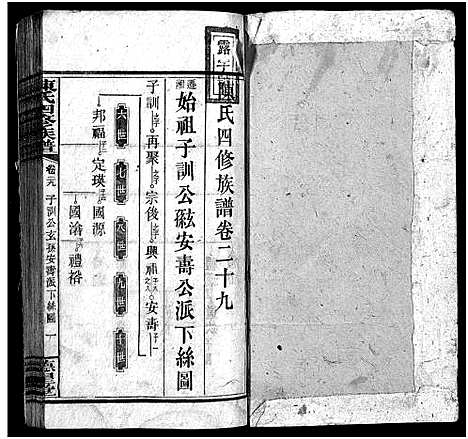 露亭陳氏四修族譜卷二十九
遷湘始祖子訓公玄孫安壽公派下絲圖
子訓之子再聚之子宗俊子興福子八之八安壽子一
六世 七世 八世 九世 十世
邦福子定瑛子國源
國濬 禮裕
陳氏四修族譜 卷廿九 子訓公玄孫安壽派下絲圖 一